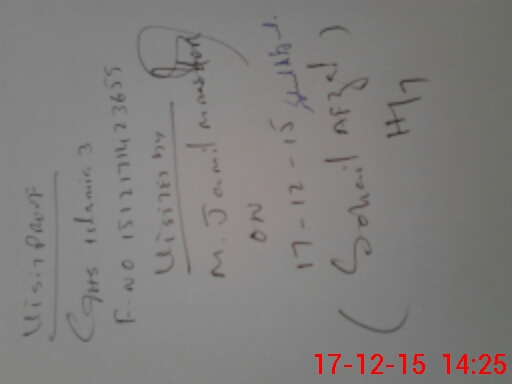 Visit Proof
GHS Islamia 3
F-NO 15121711423655
Visited by
M. Jamil
ON
17-12-15
(Sohail Afzal)
H/M
17-12-15 14:25